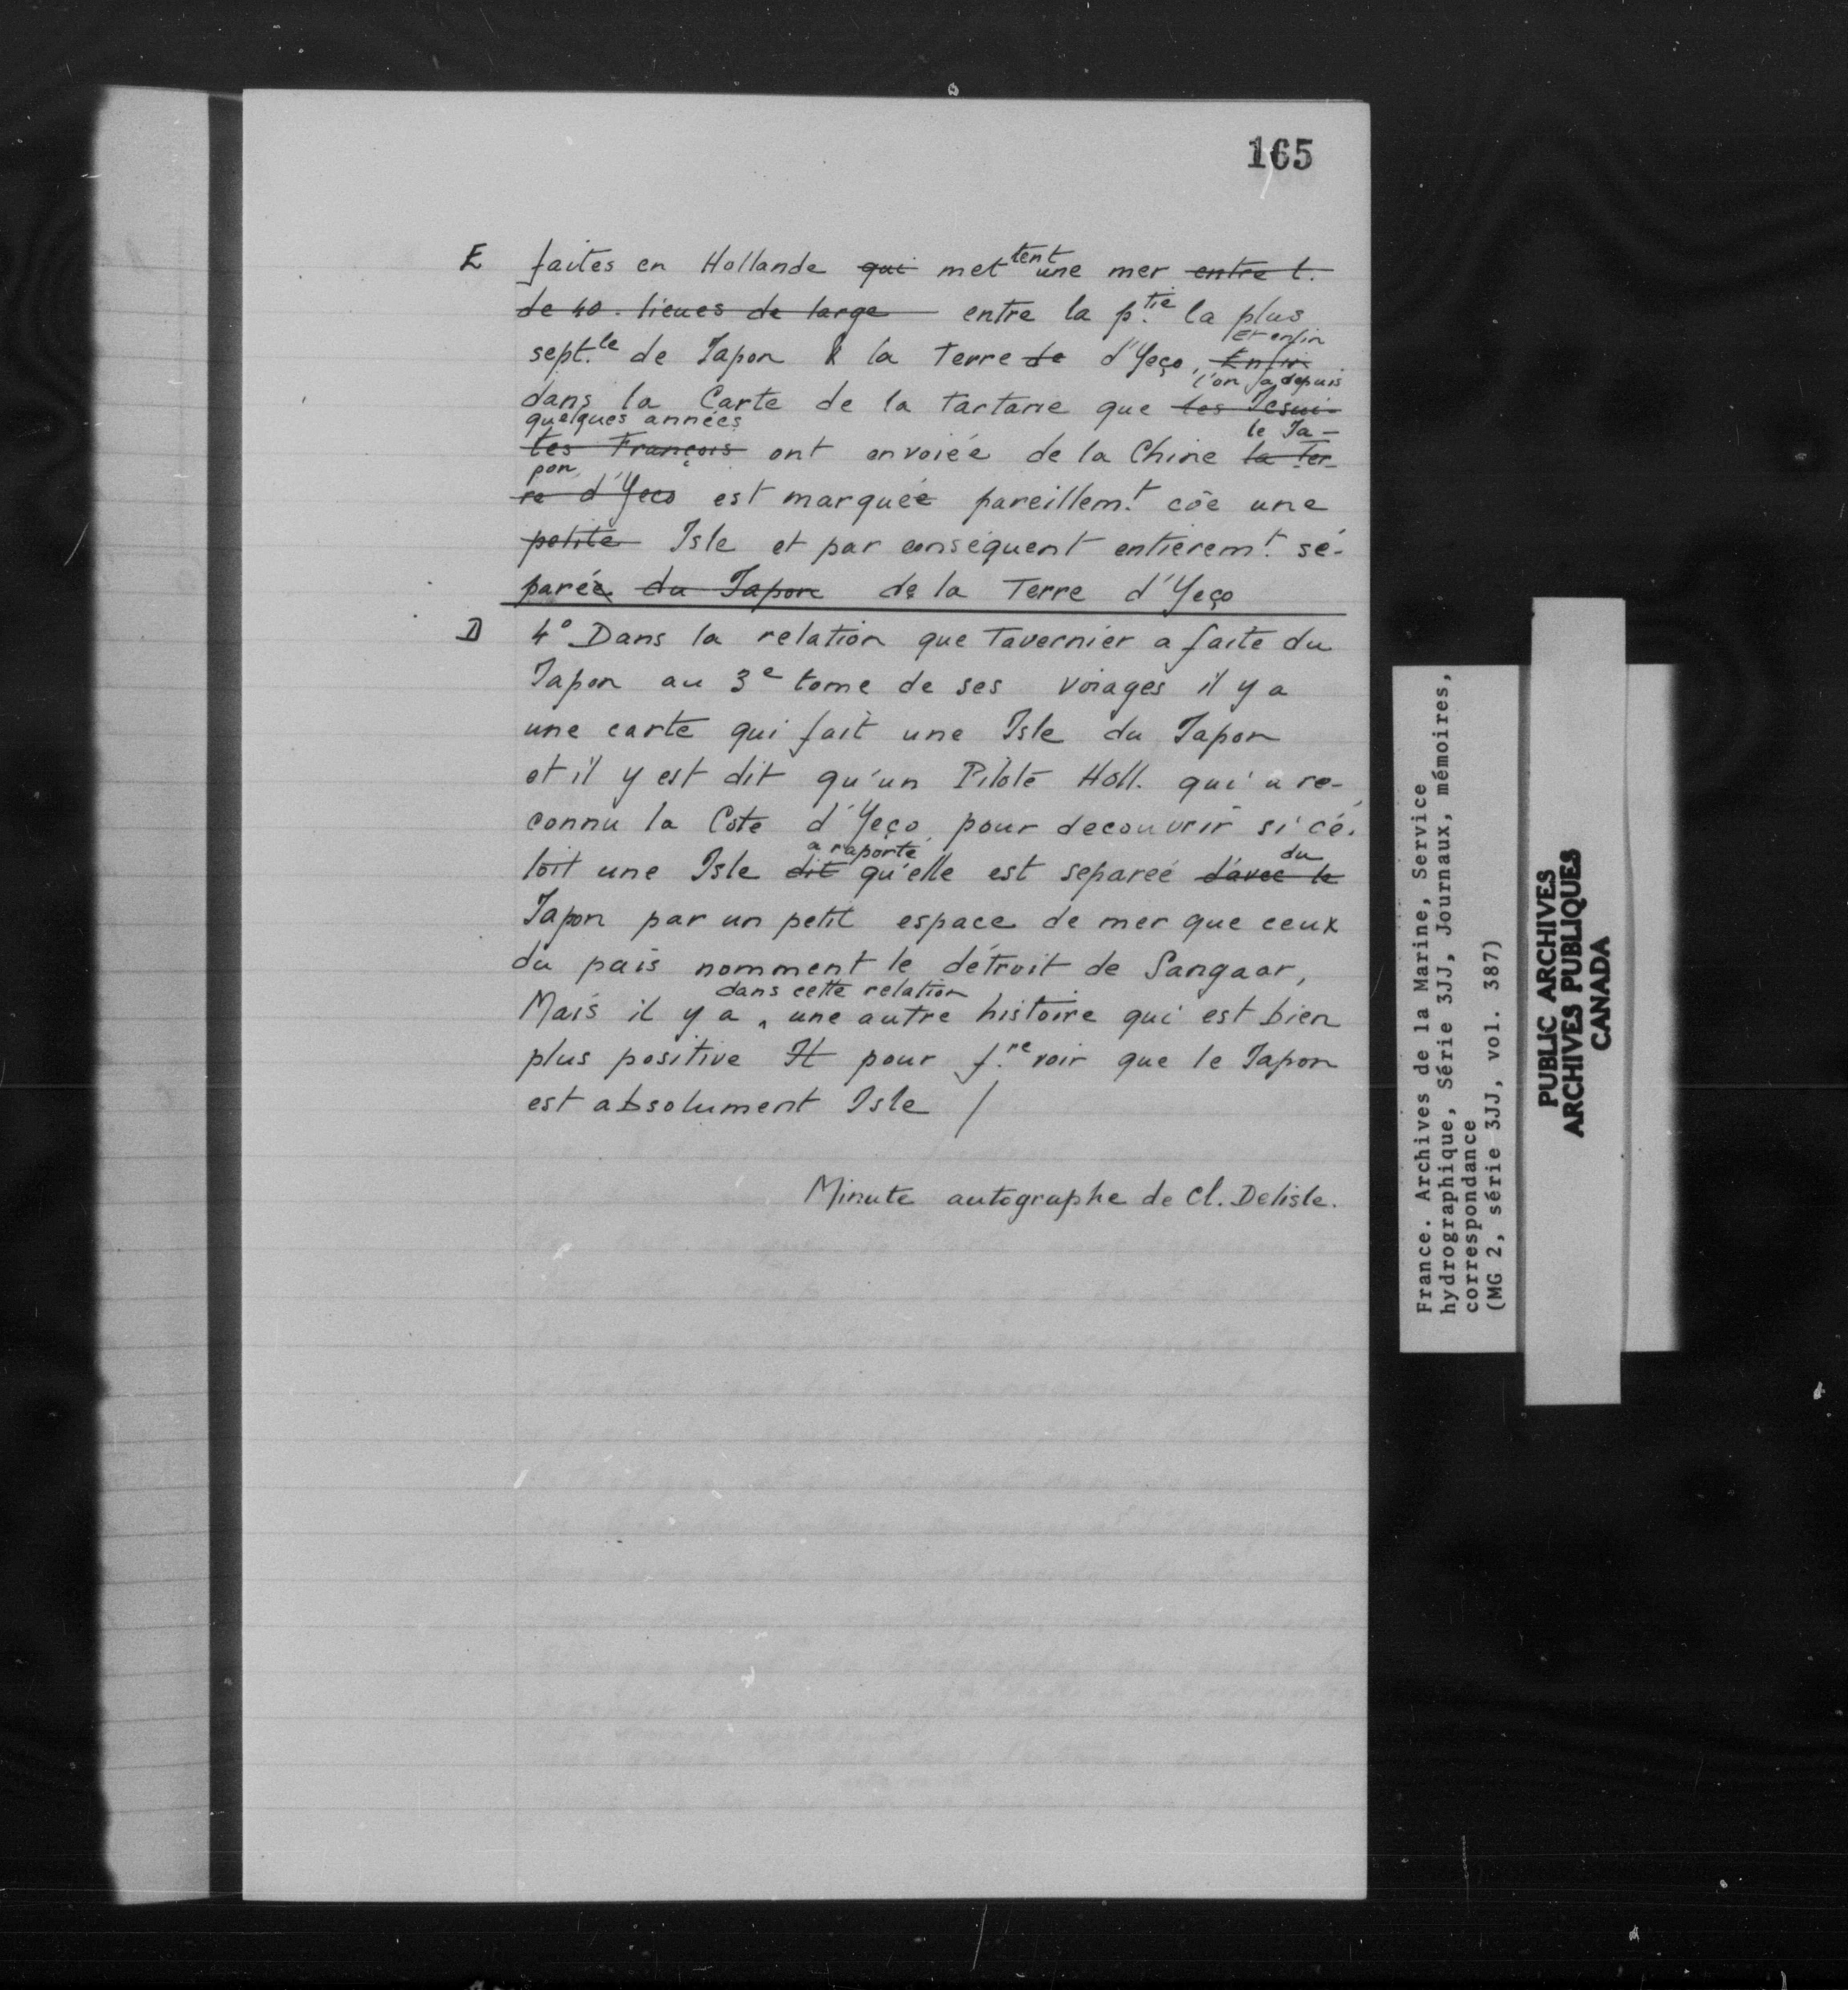 165
E faites en Hollande qui mettent une mer entre l.
de 40. lieues de large entre la p.tie la plus
Et enfin
sept.le de Japon & la Terre de d'Yeço, Enfin
l'on a depuis
dans la Carte de la Tartarie que les Jesui-
quelques années le Ja-
tes François ont envoiée de la Chine la ter-
pon
re d'Yeco est marquée pareillem.t cõe une
petite Isle et par conséquent entierem.t sé-
parée du Japon de la Terre d'Yeço
D 4° Dans la relation que Tavernier a faite du
Japon au 3e tome de ses voiages il y a
une carte qui fait une Isle du Japon
et il y est dit qu'un Pilote Holl. qui a re-
connu la Cote d'Yeço, pour decouvrir si cé-
a raporté du
toit une Isle dit qu'elle est separeé d'avec le
Japon par un petit espace de mer que ceux
du païs nomment le détroit de Sangaar,
dans cette relation
Mais il y a , une autre histoire qui est bien
plus positive It pour f.re voir que le Japon
est absolument Isle /
Minute autographe de Cl. Delisle.
France. Archives de la Marine, Service
hydrographique, Série 3JJ, Journaux, mémoires,
correspondance
(MG 2, série 3JJ, vol. 387)
PUBLIC ARCHIVES
ARCHIVES PUBLIQUES
CANADA